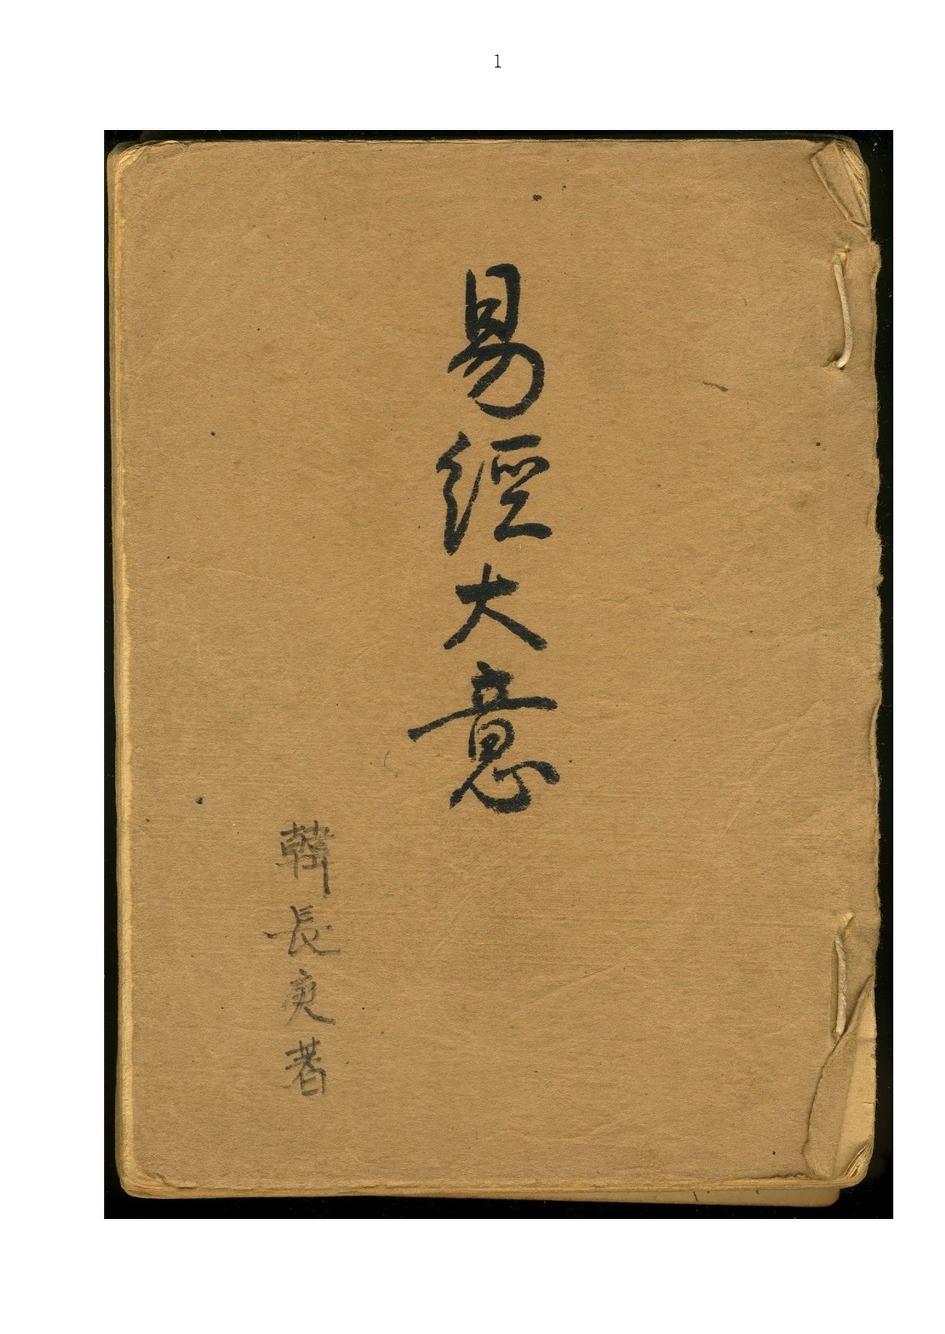 1
易經大意
韓長庚著